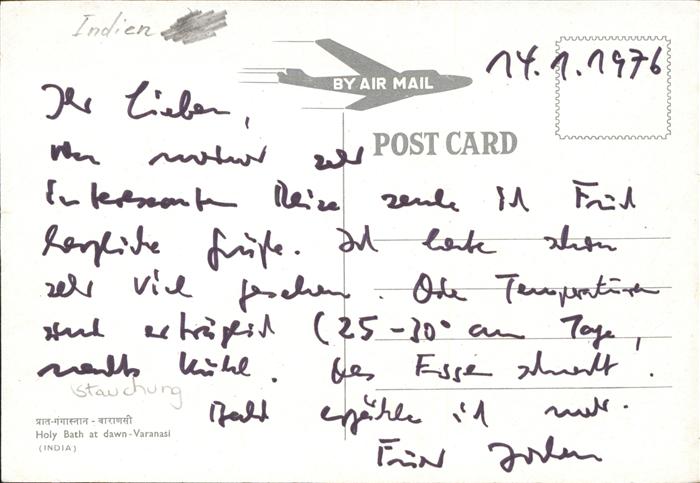 Indien
BY AIR MAIL
14.1.1976
POST CARD
Ihr Lieben,
von meiner sehr
interessanten Reise sende ich Euch
herzliche Grüße. Ich habe schon
sehr viel gesehen. Die Temperaturen
sind erträglich (25-30° am Tage,
nachts kühl. Das Essen schmeckt.
Stauchung
Bald erzähle ich mehr.
Euer Jochen
प्रात-गंगास्नान - वाराणसी
Holy Bath at dawn-Varanasi
(INDIA)